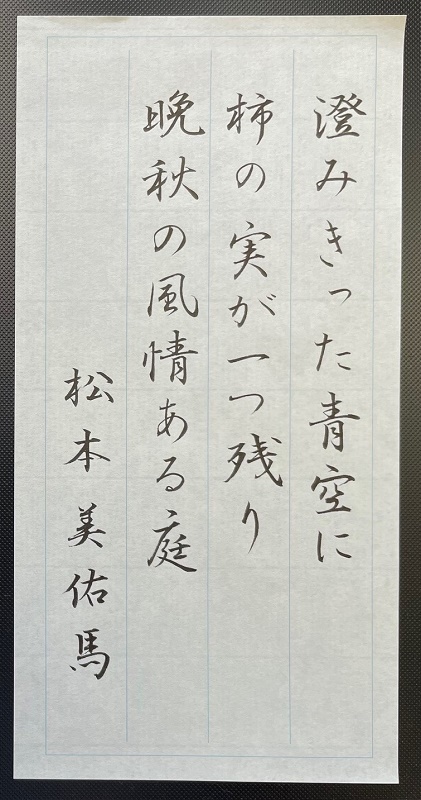 澄みきった青空に
柿の実が一つ残り
晩秋の風情ある庭
松本美佑馬